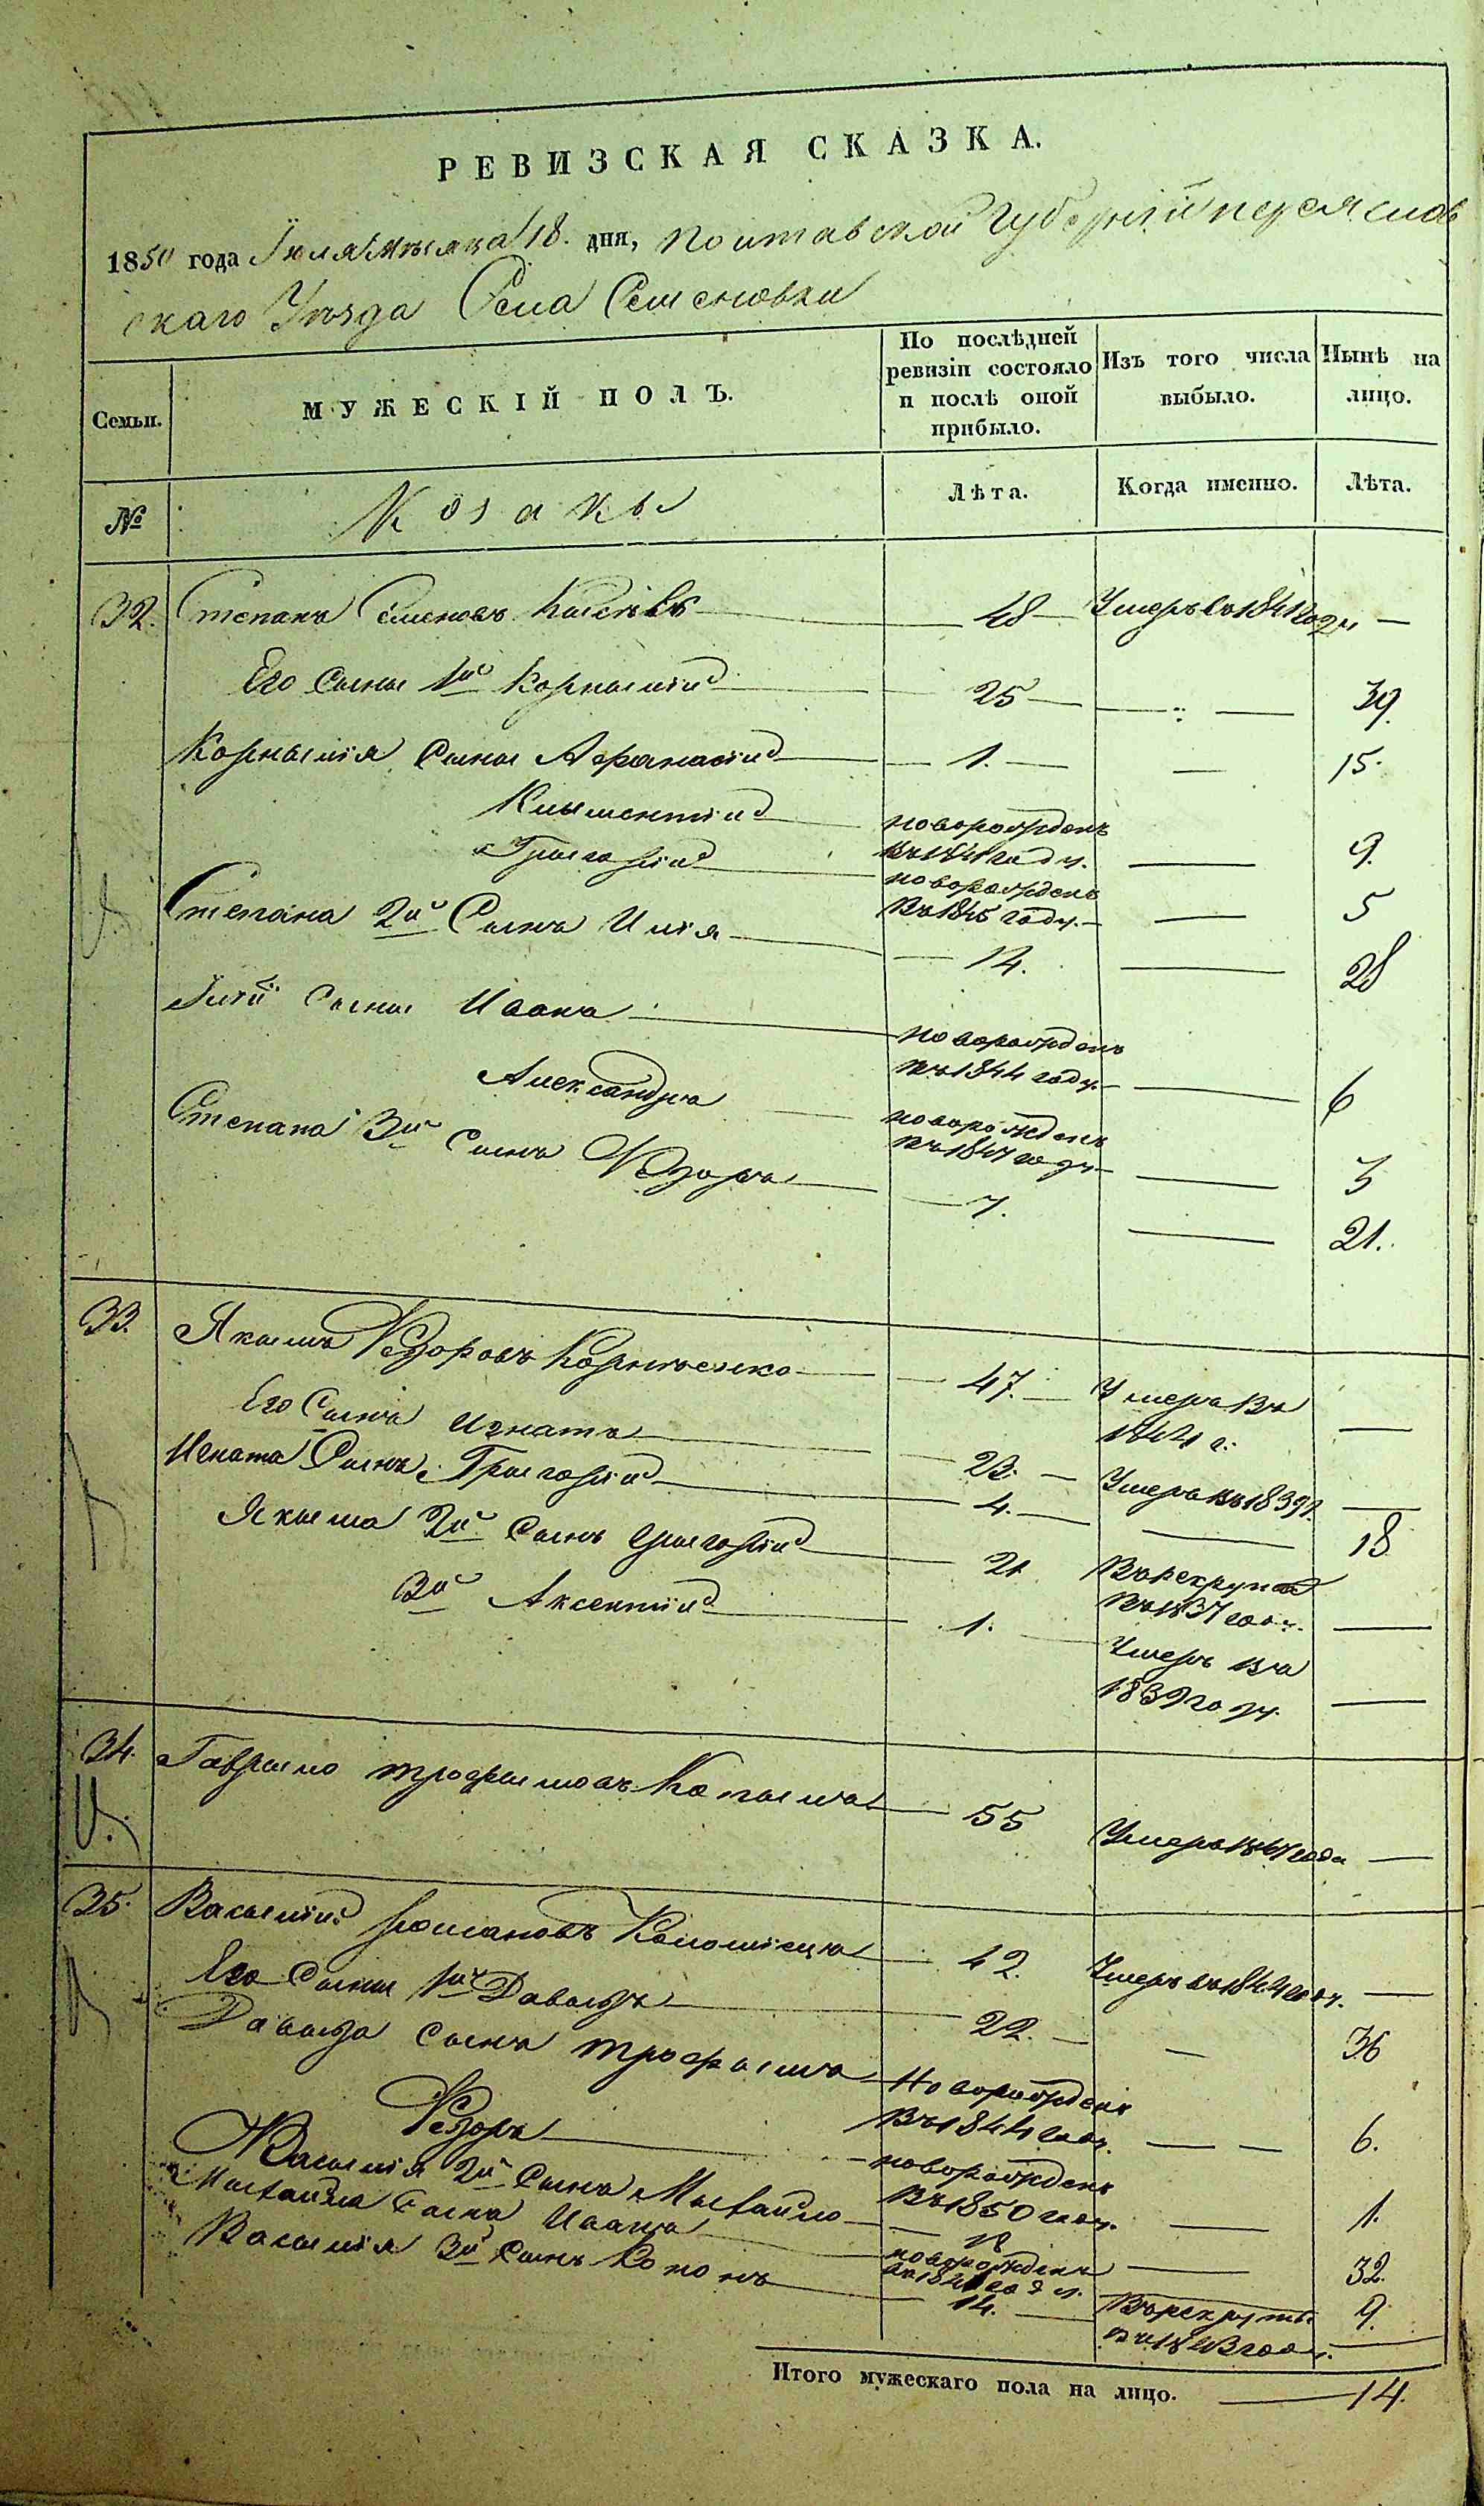 РЕВИЗСКАЯ СКАЗКА.
1850 года Іюля Мѣсяца 18. дня, Полтавской Губерніи переяслав
скаго Уѣзда Села Семеновки
Семьи.
МУЖЕСКІЙ ПОЛЪ.
По послѣдней ревизіи состояло и послѣ оной прибыло.
Изъ того числа выбыло.
Нынѣ на лицо.
№
Козакы
Лѣта.
Когда именно.
Лѣта.
32. Степанъ Семеновъ 48 Умеръ въ 1841 году —
Его Сыны 1й Корнылій 25 — 39.
Корнылія Сыны Афанасій 1. — 15.
Клыментій новорожденъ въ 1841 году. — 9.
Грыгорій новорожденъ въ 1845 году. — 5
Степана 2й Сынъ Илія 14. — 28
Іліи Сыны Иванъ новорожденъ въ 1844 году. — 6
Александръ новорожденъ въ 1847 году — 3
Степана 3й Сынъ Ѳедоръ 7. — 21.
33. Якымъ Ѳедоровъ Корніенко 47 — Умеръ въ 1844 г. —
Его Сынъ Игнатъ 23. — Умеръ въ 1839 г. —
Игната Сынъ Грыгорій 4. — 18
Якыма 2й Сынъ Грыгорій 21 Въ рекруты въ 1837 году. —
3й Аксентій 1. Умеръ въ 1839 году. —
34. Гаврыло Трофымовъ 55 Умеръ 1847 года —
35. Васылій Романовъ Коломіецъ 42. Умеръ въ 1844 году. —
Его Сыны 1й Давыдъ 22. — 36
Давыда Сынъ Трофымъ Новорожденъ въ 1844 году. — 6.
Ѳедоръ новорожденъ въ 1850 году. — 1.
Васылія 2й Сынъ Мыхайло 18 — 32.
Мыхайла Сынъ Иванъ новорожденъ въ 1841 году. — 9.
Васылія 3й Сынъ Кононъ 14. — Въ рекруты въ 1843 году. —
Итого мужескаго пола на лицо. — 14.